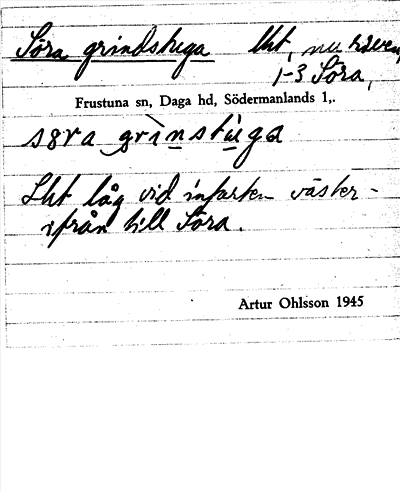 Söra grindstuga Lht, nu riven,
1-3 Söra,
Frustuna sn, Daga hd, Södermanlands l,.
söra grinstuga
Lht låg vid infarten väster-
ifrån till Söra.
Artur Ohlsson 1945